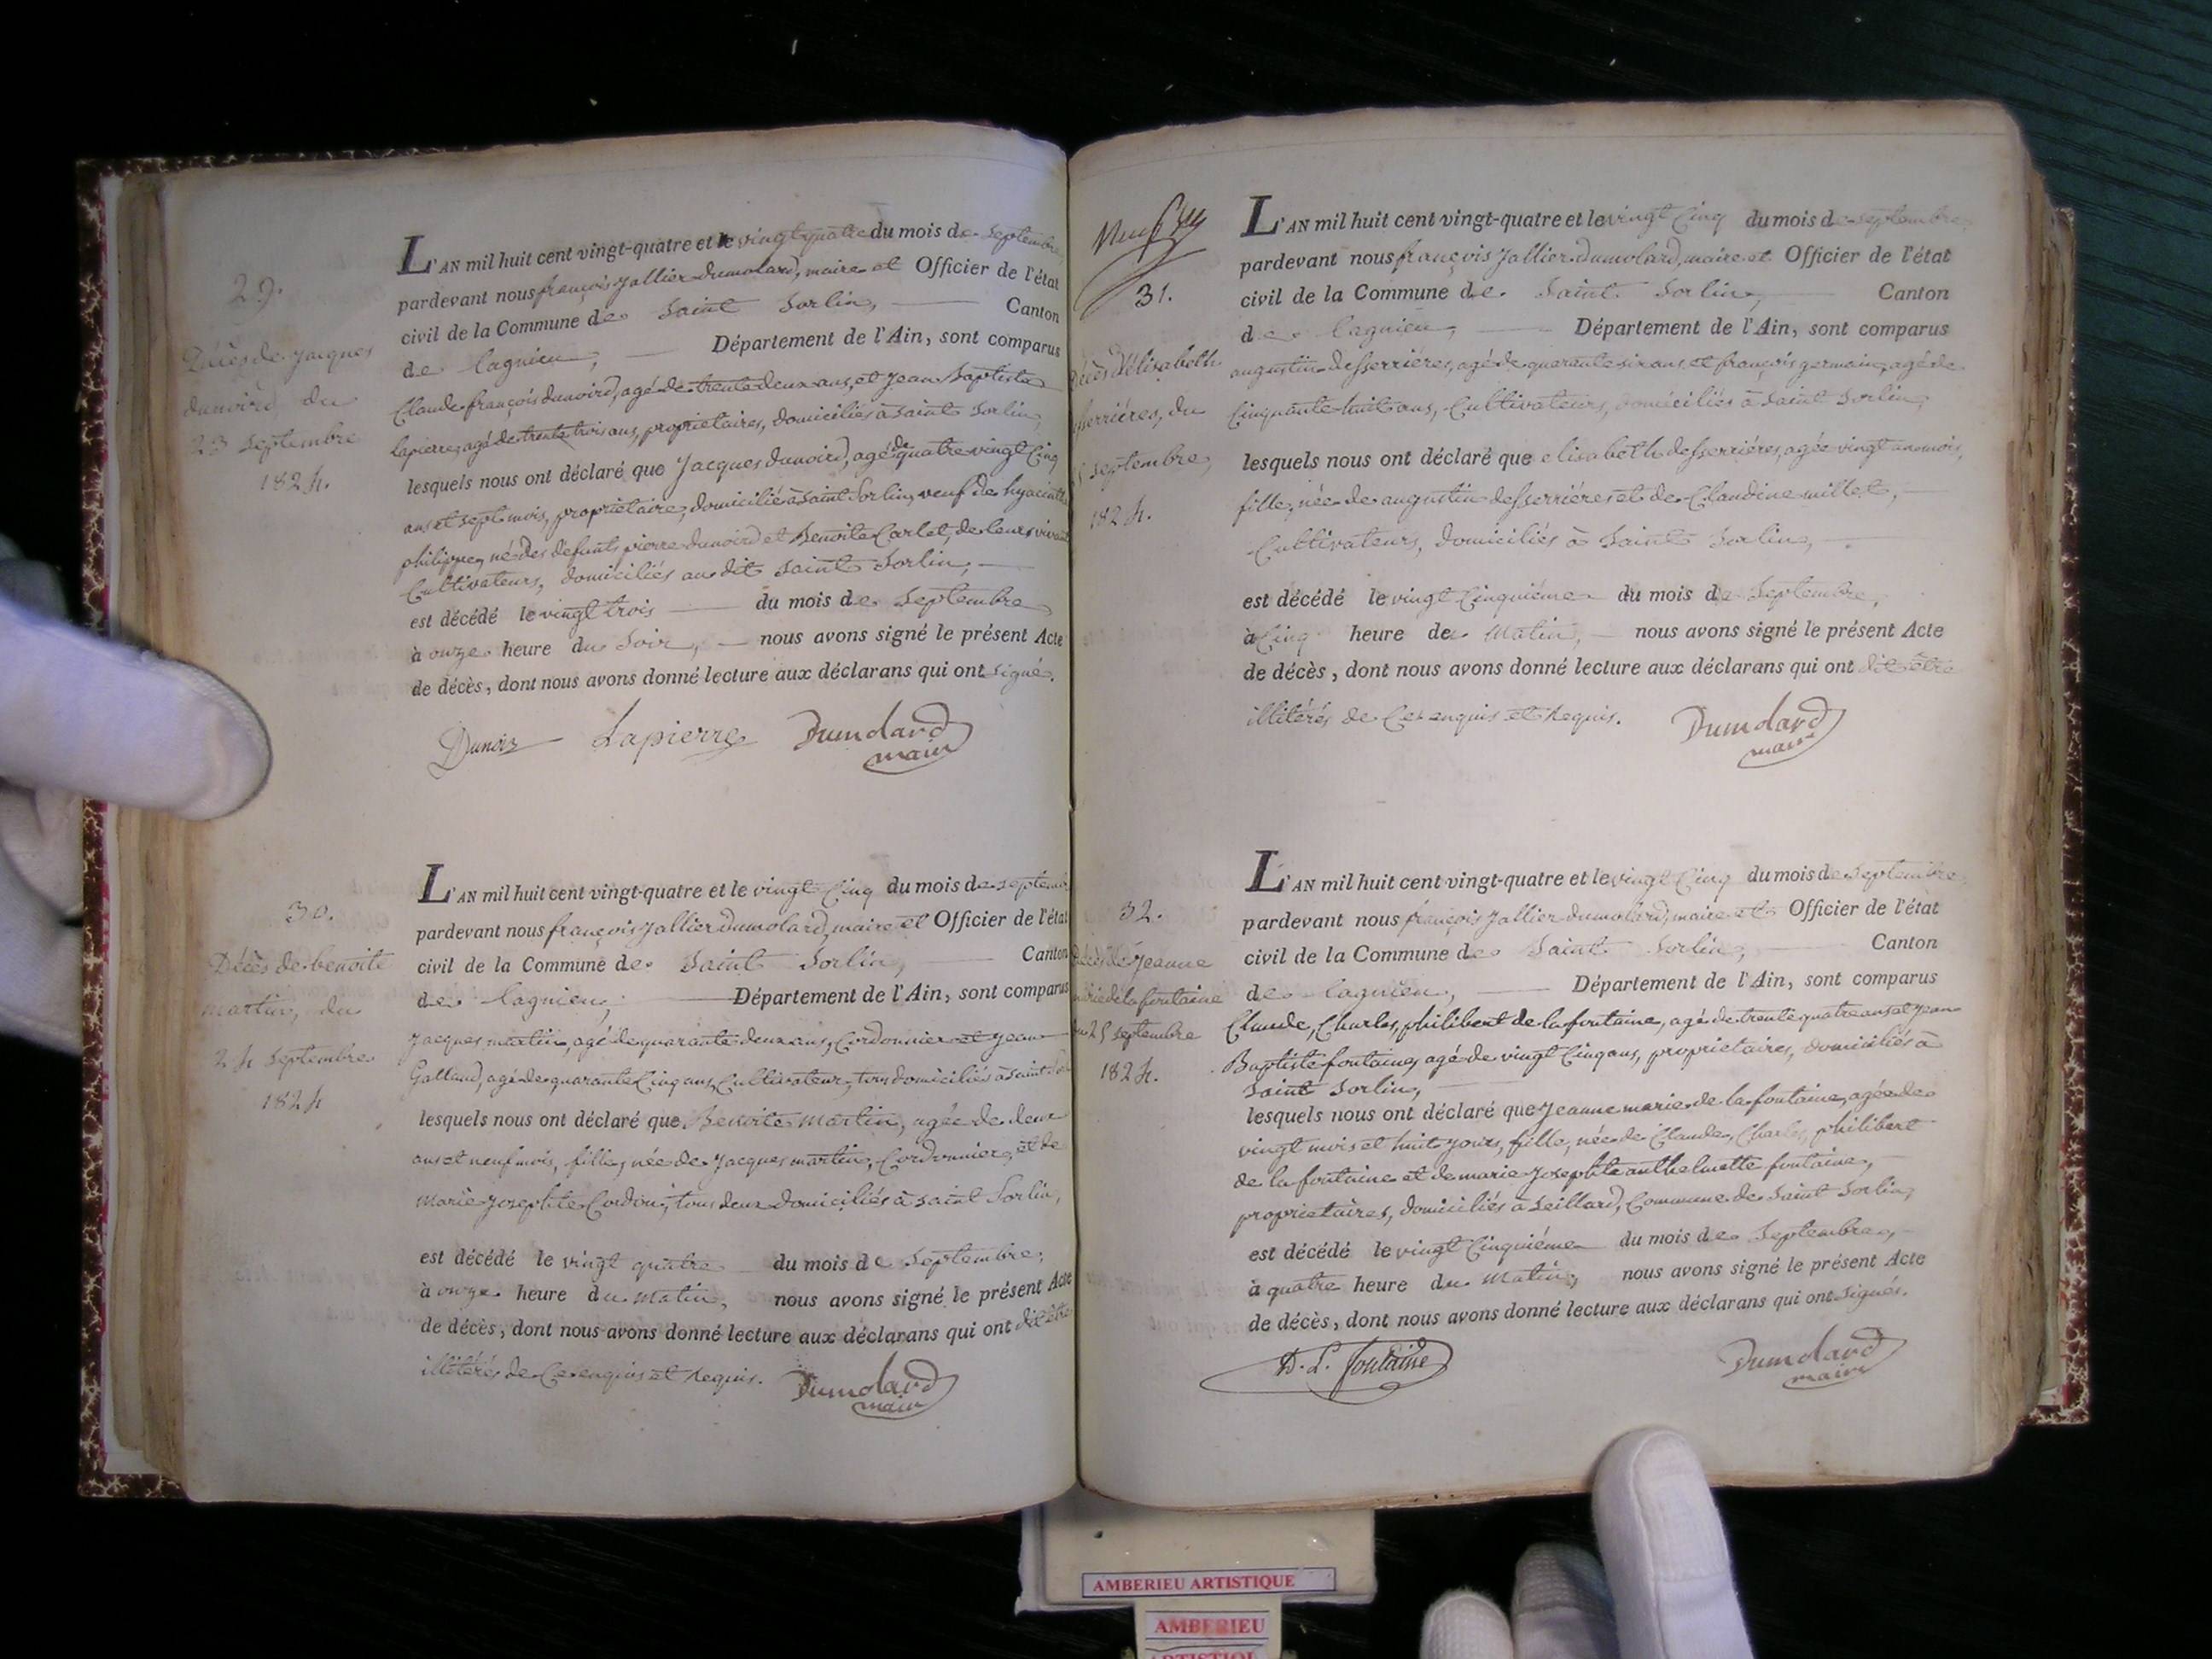 29.
Décès de jacques
dunoird, du
23 septembre
1824.
L'AN mil huit cent vingt-quatre et le vingt quatre du mois de septembre
pardevant nous françois jallier dumolard, maire et Officier de l'état
civil de la Commune de Saint Sorlin, Canton
de lagnieu, Département de l'Ain, sont comparus
Claude françois dunoird, agé de trente deux ans, et jean Baptiste
lapierre, agé de trente trois ans, proprietaires, domiciliés à saint Sorlin,
lesquels nous ont déclaré que jacques dunoird, agé de quatre vingt Cinq
ans et sept mois, proprietaire, domicilié à saint Sorlin, veuf de hyacinthe
philippe, né des defunts pierre dunoird et Benoite Carlet, de leurs vivant
Cultivateurs, domiciliés au dit saint Sorlin,
est décédé le vingt trois du mois de Septembre
à onze heure du Soir, nous avons signé le présent Acte
de décès, dont nous avons donné lecture aux déclarans qui ont signé.
Dunoir Lapierre Dumolard
maire
30.
Décès de benoite
martin, du
24 septembre
1824
L'AN mil huit cent vingt-quatre et le vingt Cinq du mois de septembre
pardevant nous françois jallier dumolard, maire et Officier de l'état
civil de la Commune de Saint Sorlin, Canton
de lagnieu, Département de l'Ain, sont comparus
jacques martin, agé de quarante deux ans, Cordonnier et jean
Galland, agé de quarante Cinq ans, Cultivateur, tous domiciliés à saint
lesquels nous ont déclaré que Benoite martin, agée de deux
ans et neuf mois, fille, née de jacques martin, Cordonnier, et de
marie josephte tous deux domiciliés à saint Sorlin,
est décédé le vingt quatre du mois de Septembre,
à onze heure du matin, nous avons signé le présent Acte
de décès, dont nous avons donné lecture aux déclarans qui ont dit être
illitérés de Ce enquis et requis. Dumolard
maire
31.
Décès d'élisabeth
desserriéres, du
25 septembre
1824.
L'AN mil huit cent vingt-quatre et le vingt Cinq du mois de septembre
pardevant nous françois jallier dumolard, maire et Officier de l'état
civil de la Commune de Saint Sorlin, Canton
de lagnieu, Département de l'Ain, sont comparus
augustin desserriéres, agé de quarante six ans, et françois germain, agé de
Cinquante huit ans, Cultivateurs, domiciliés à saint Sorlin,
lesquels nous ont déclaré que elisabeth desserriéres, agée vingt mois,
fille, née de augustin desserriéres et de Claudine millet,
Cultivateurs, domiciliés à Saint Sorlin,
est décédé le vingt Cinquiéme du mois de Septembre,
à Cinq heure de Matin, nous avons signé le présent Acte
de décès, dont nous avons donné lecture aux déclarans qui ont dit être
illitérés de Ce enquis et requis. Dumolard
maire
32.
Décès de jeanne
marie de la fontaine
du 25 septembre
1824.
L'AN mil huit cent vingt-quatre et le vingt Cinq du mois de septembre
pardevant nous françois jallier dumolard, maire et Officier de l'état
civil de la Commune de Saint Sorlin, Canton
de lagnieu, Département de l'Ain, sont comparus
Claude, Charles, philibert de la fontaine, agé de trente quatre ans et jean
Baptiste fontaine, agé de vingt Cinq ans, proprietaires, domiciliés à
saint Sorlin,
lesquels nous ont déclaré que jeanne marie de la fontaine, agée de
vingt mois et huit jours, fille, née de Claude, Charles, philibert
de la fontaine et de marie josephte anthelmette fontaine,
proprietaires, domiciliés à Seillard, Commune de saint Sorlin,
est décédé le vingt Cinquiéme du mois de Septembre,
à quatre heure du Matin, nous avons signé le présent Acte
de décès, dont nous avons donné lecture aux déclarans qui ont signés.
D. L. fontaine Dumolard
maire
AMBERIEU ARTISTIQUE
AMBERIEU
ARTISTIQUE